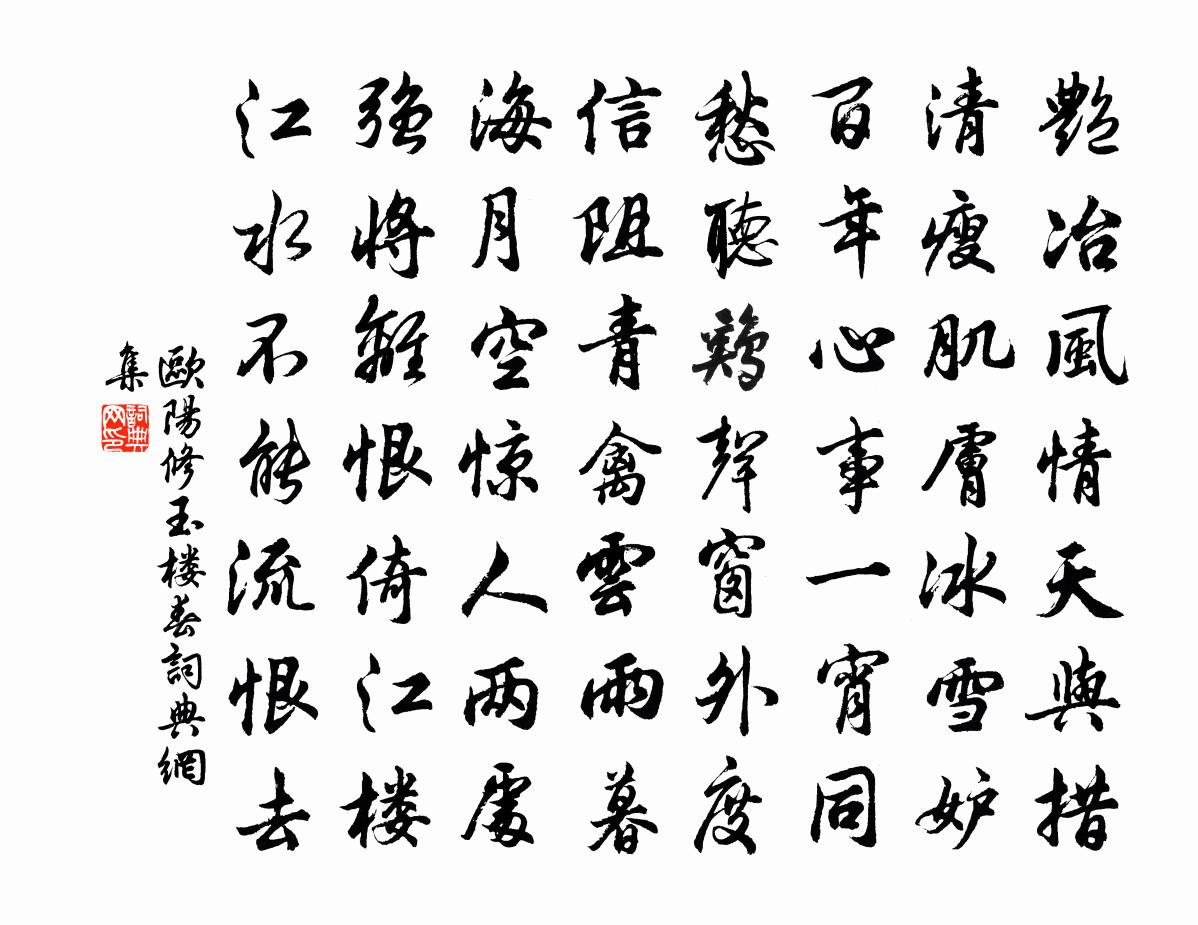 艷冶風情天與措
清瘦肌膚冰雪妒
百年心事一宵同
愁聽鷄聲窗外度
信阻青禽雲雨暮
海月空惊人两處
强將離恨倚江楼
江水不能流恨去
歐陽修玉楼春詞典網
集
詞典网印